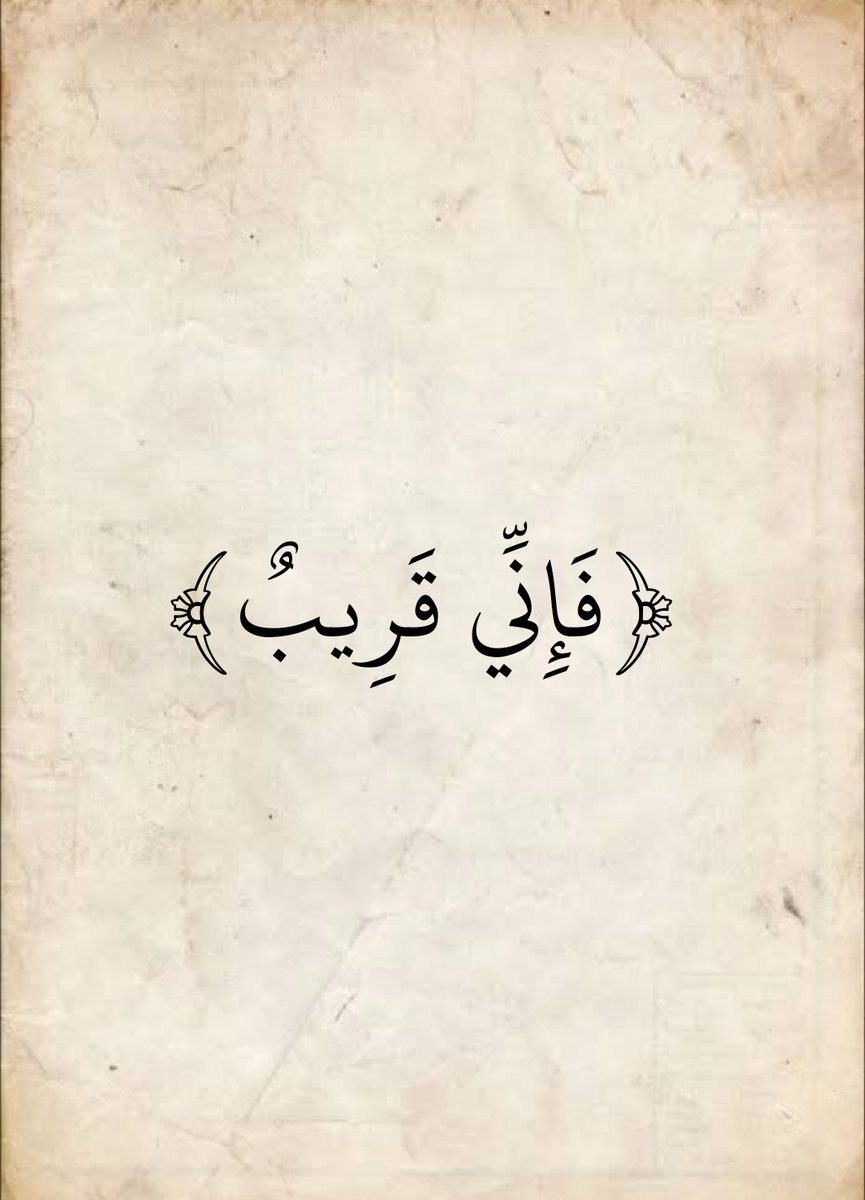 ﴿فَإِنِّي قَرِيبٌ﴾